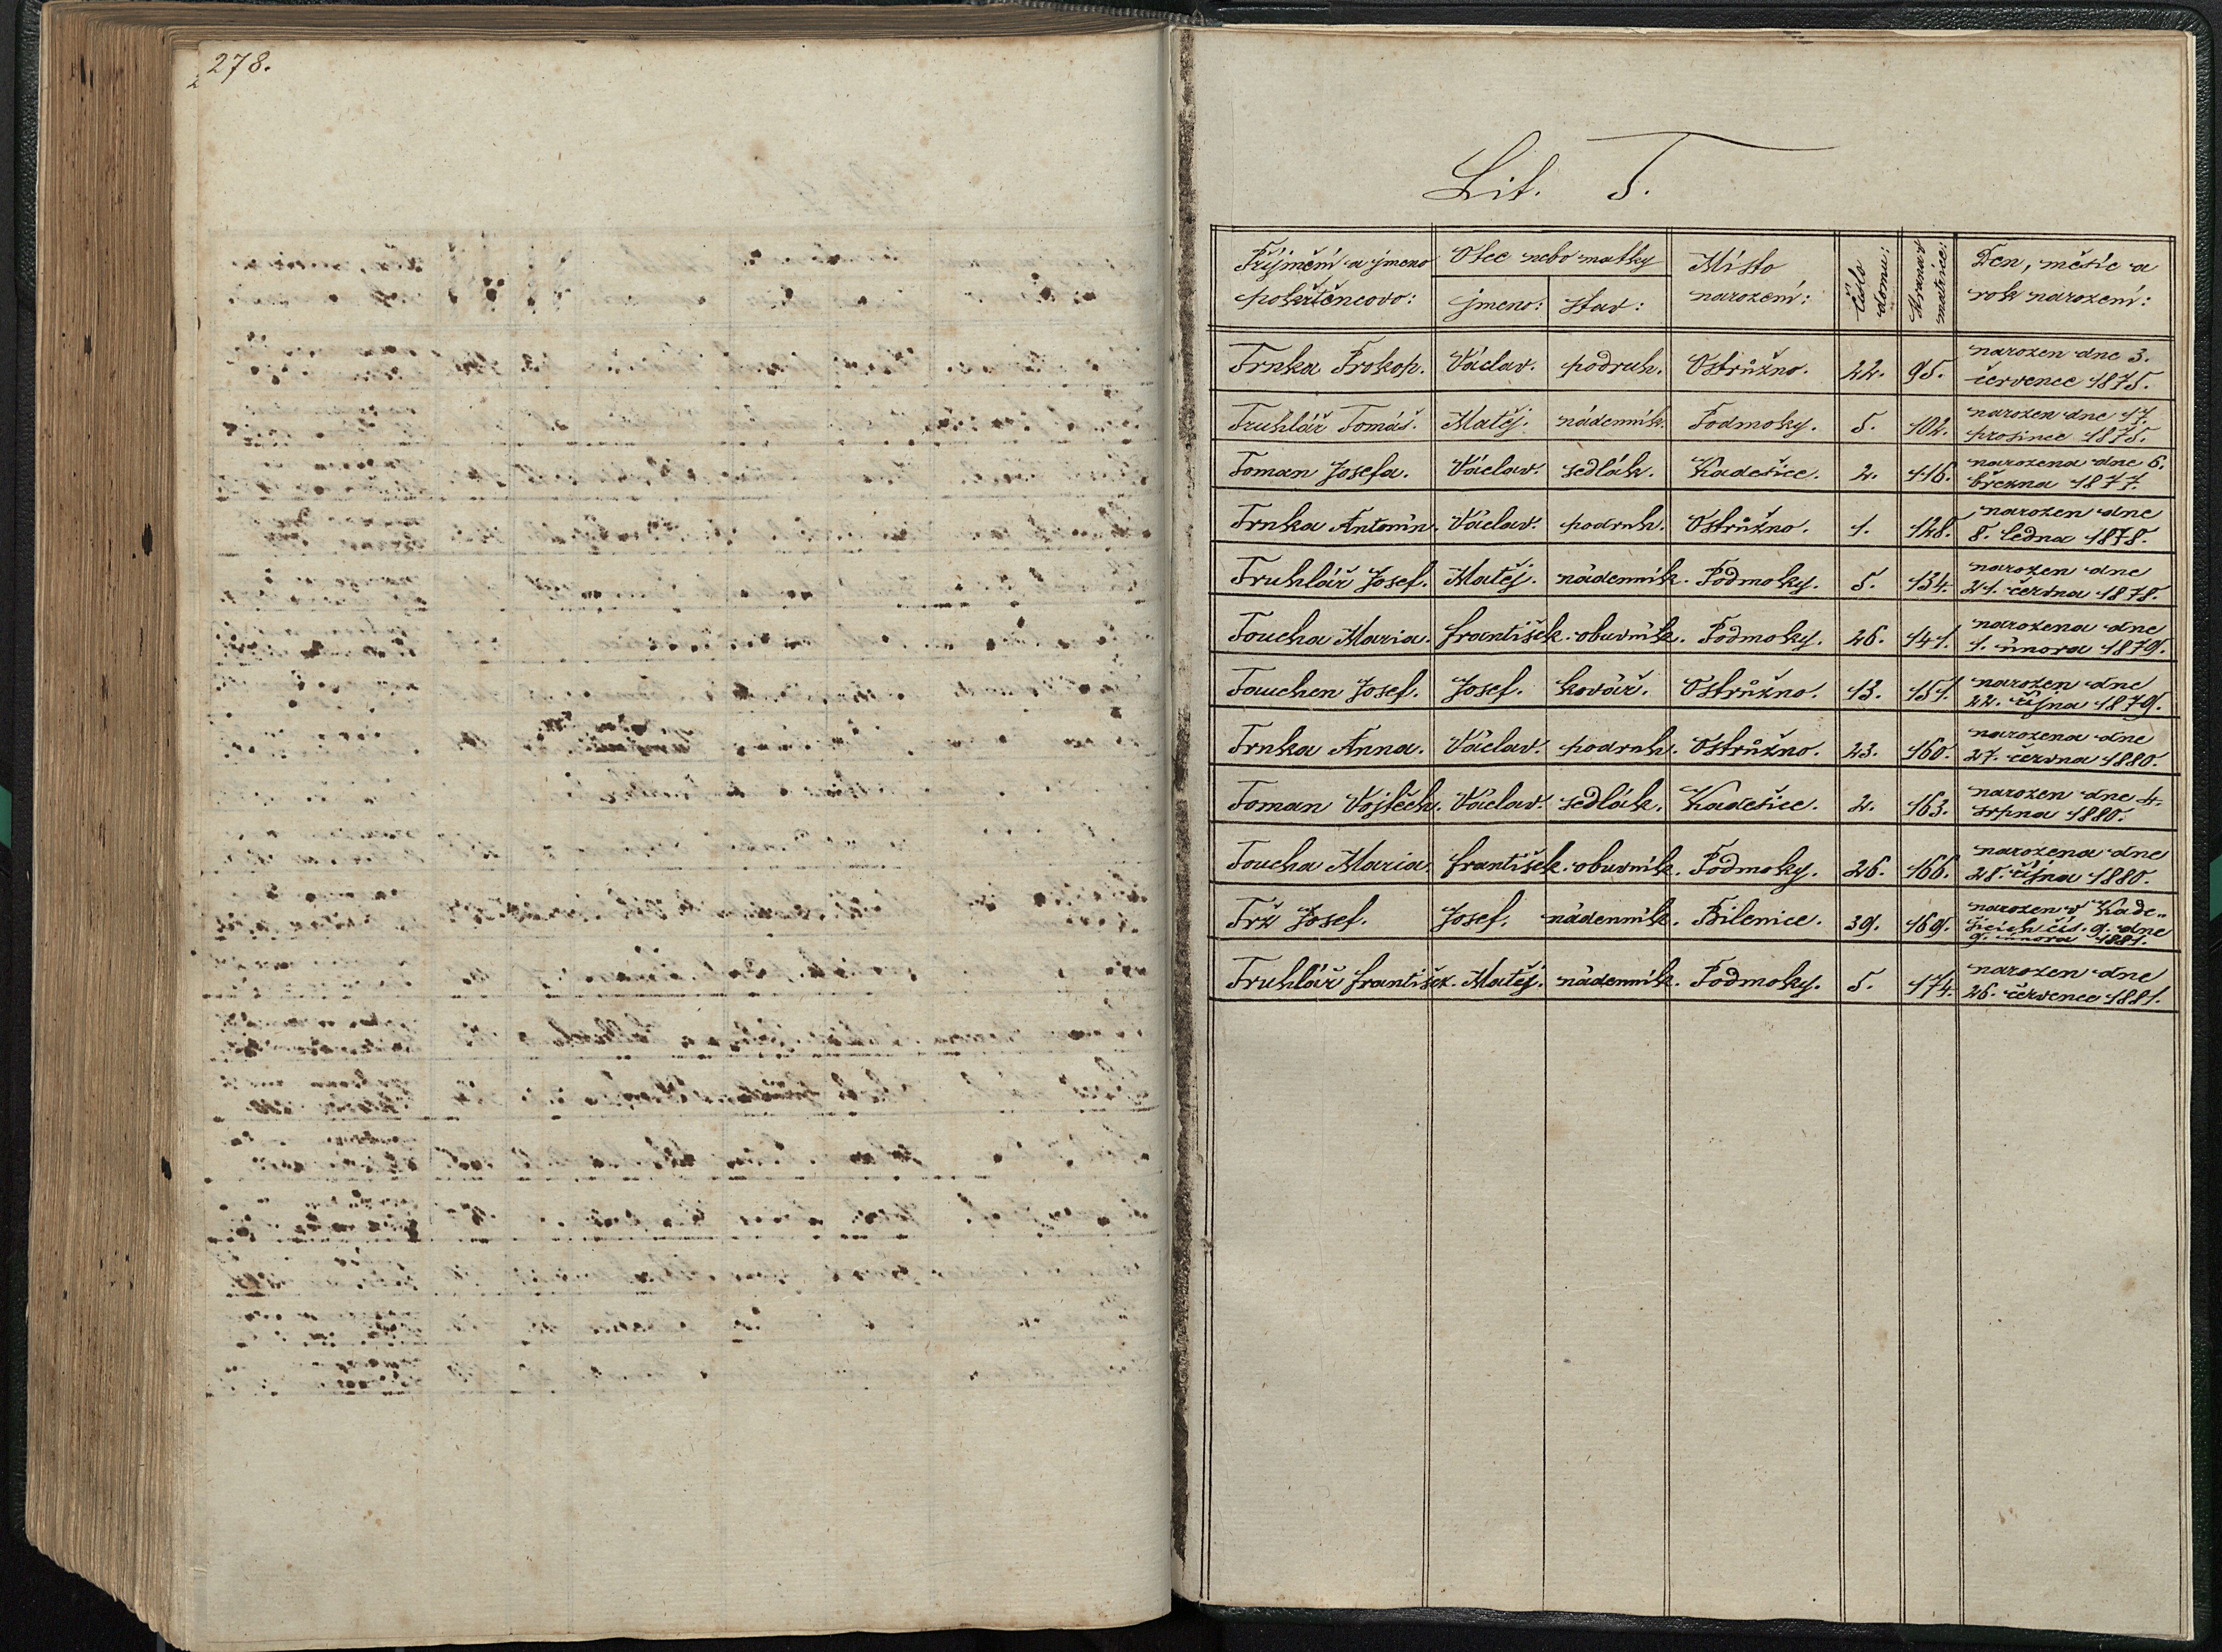 278.
Lit. T.
Příjmění a jmeno pokřtěncovo: Otec nebo matky jmeno: stav: Místo narození: číslo domu: Strana matrice: Den, měsíc a rok narození:
Trnka Prokop. Václav. podruh. Ostrůžno. 22. 95. narozen dne 3. července 1875.
Truhlář Tomáš. Matěj. nádenník. Podmoky. 5. 102. narozen dne 17. prosince 1875.
Toman Josefa. Václav. sedlák. Kadešice. 2. 116. narozena dne 6. března 1877.
Trnka Antonín. Václav. podruh. Ostrůžno. 1. 128. narozen dne 8. ledna 1878.
Truhlář Josef. Matěj. nádenník. Podmoky. 5. 134. narozen dne 21. června 1878.
Toucha Maria. František. obuvník. Podmoky. 26. 141. narozena dne 1. února 1879.
Tauchen Josef. Josef. kovář. Ostrůžno. 13. 151. narozen dne 22. října 1879.
Trnka Anna. Václav. podruh. Ostrůžno. 23. 160. narozena dne 27. června 1880.
Toman Vojtěch. Václav. sedlák. Kadešice. 2. 163. narozen dne 4. srpna 1880.
Toucha Maria. František. obuvník. Podmoky. 26. 166. narozena dne 28. října 1880.
Trž Josef. Josef. nádenník. Bílenice. 39. 169. narozen v Kade„ šicích čís. 9. dne 9. února 1881.
Truhlář František. Matěj. nádenník. Podmoky. 5. 174. narozen dne 26. července 1881.